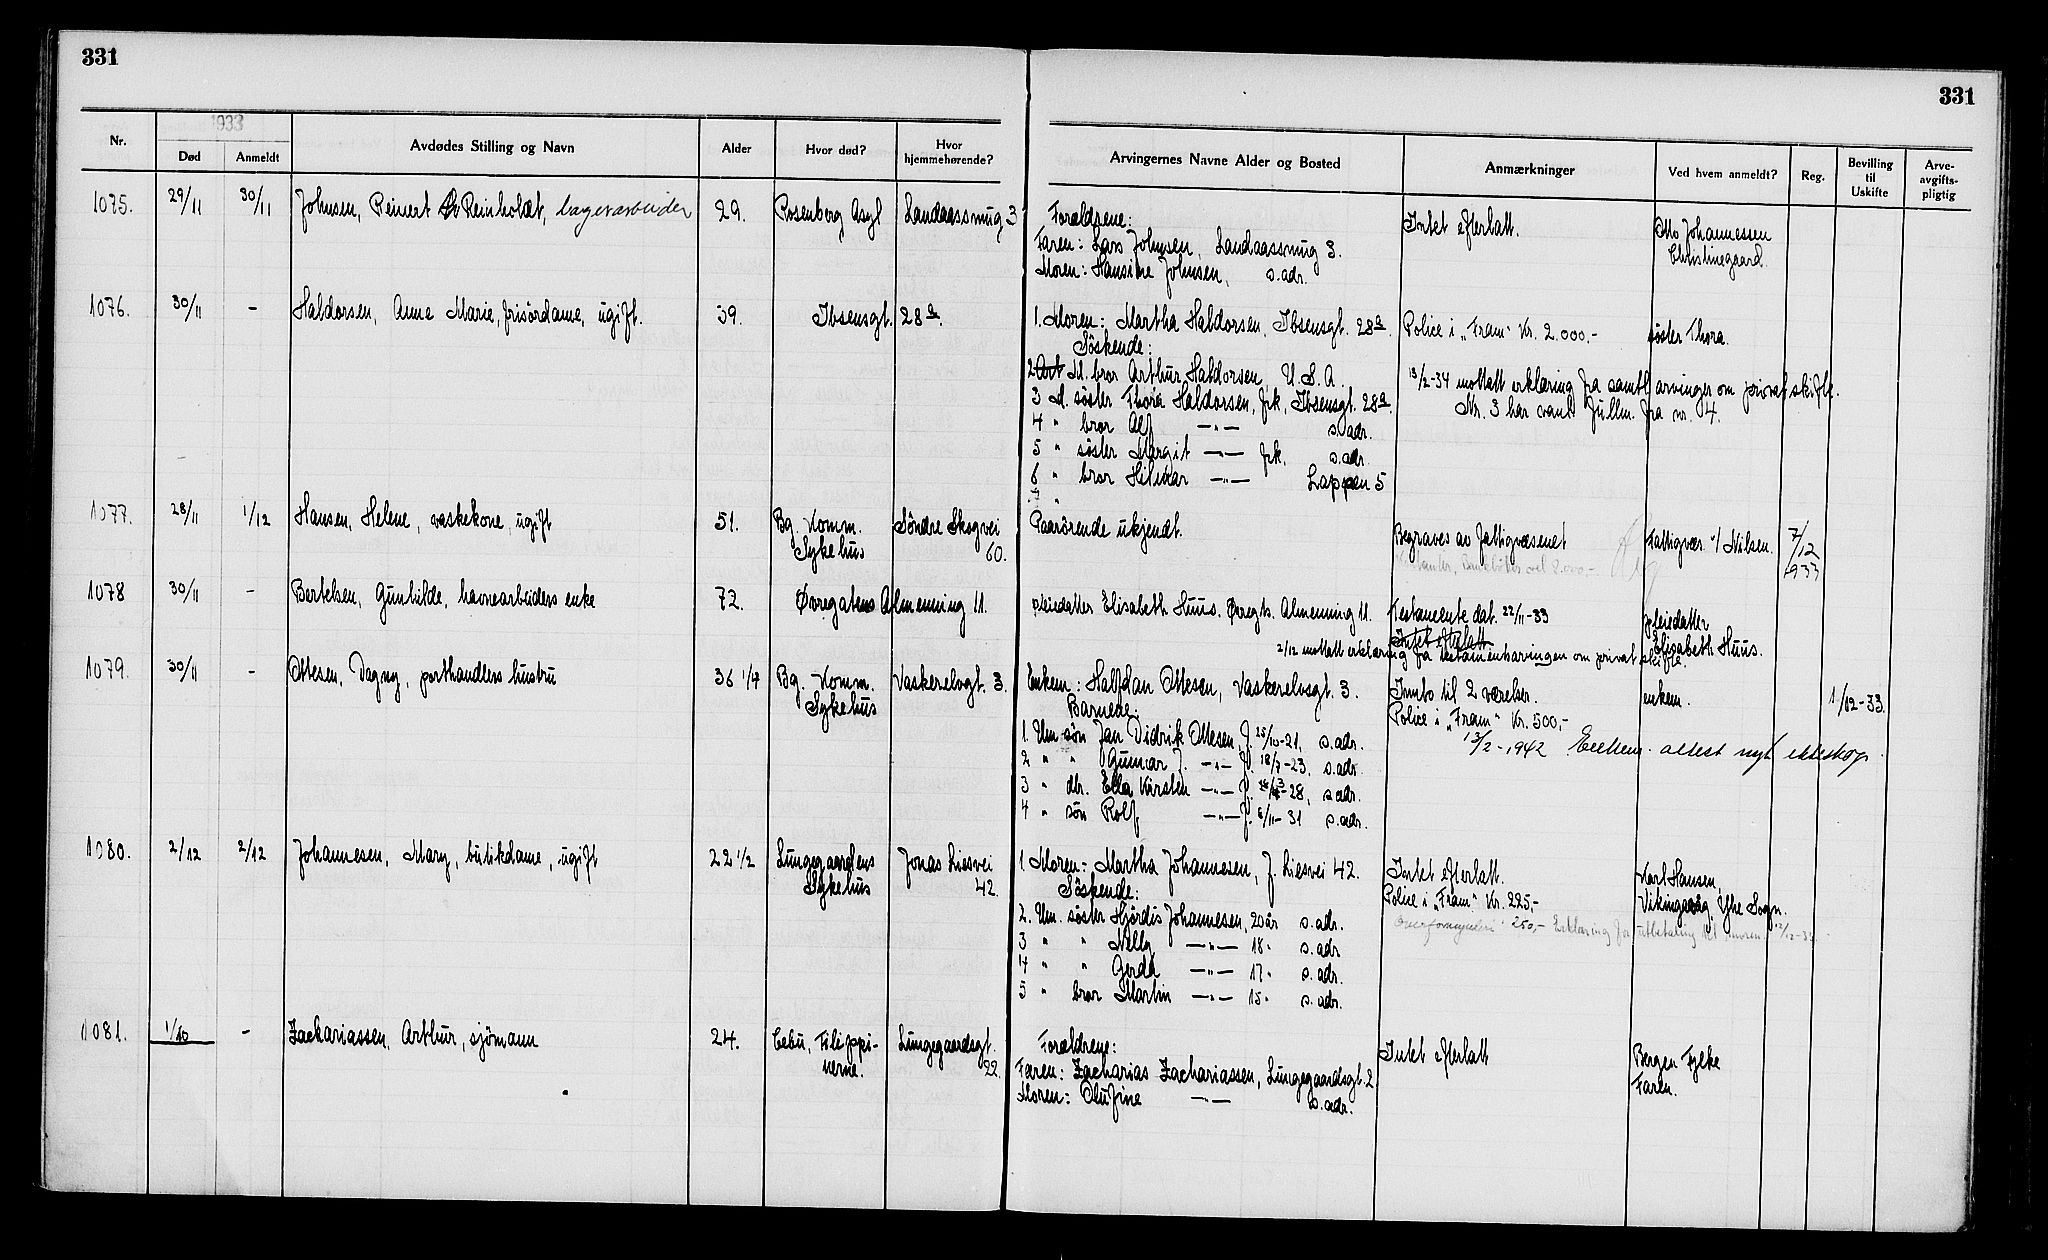 331
331
Nr.
1933
Død
Anmeldt
Avdødes Stilling og Navn
Alder
Hvor død?
Hvor hjemmehørende?
Arvingernes Navne Alder og Bosted
Anmærkninger
Ved hvem anmeldt?
Reg.
Bevilling til Uskifte
Arve-avgifts-pligtig
1075. 29/11 30/11 Johnsen, Reinert Reinholdt, lagerarbeider 29. Rosenberg Asyl Landaassmug 3
Forældrene:
Faren: Lars Johnsen, Landaassmug 3.
Moren: Hansine Johnsen, s. adr.
Intet efterlatt.
Otto Johannessen
Christinegaard.
1076. 30/11 - Haldorsen, Anne Marie, frisørdame, ugift. 39. Ibsensgt. 28a.
1. Moren: Martha Haldorsen, Ibsensgt. 28a.
Söskende:
2 M. bror Arthur Haldorsen, U. S. A.
3 M. söster Thora Haldorsen, frk, Ibsensgt. 28a.
4 " bror Alf -"- s. adr.
5 " söster Margit -"- frk. s. adr.
6 " bror Hilmar -"- Lappen 5
Police i "Fram" Kr. 2.000.-
söster Thora.
13/2-34 mottatt erklæring fra samtl arvinger om privat skifte.
Nr. 3 har fullm. fra nr. 4.
1077. 28/11 1/12 Hansen, Helene, vaskekone, ugift 51. Bg. Komm. Sykehus Söndre Skogvei 60.
Paarörende ukjendt.
Begraves av fattigvæsenet
Fattigvæs. v/ Nilsen.
7/12 1933
1078 30/11 - Bertelsen, Gunhilde, havnearbeiders enke 72. Øvregatens Almenning 11.
pleiedatter Elisabeth Huus. Øvregts. Almenning 11.
Testamente dat. 22/11-33
Intet efterlatt
pleiedatter
Elisabeth Huus.
2/12 mottatt erklæring fra testamentsarvingen om privat skifte.
1079. 30/11 - Ottesen, Dagny, porthandlers hustru 36 1/4 Bg. Komm. Sykehus Vaskerelvgt. 3.
Enkem.: Halfdan Ottesen, Vaskerelvsgt. 3.
Barnene:
1. Um. sön Jan Didrik Ottesen, f. 25/10-21, s. adr.
2 " " Gunnar J. -"- f. 18/7-23, s. adr.
3 " dtr. Ella Kirsten -"- f. -28, s. adr.
4 " sön Rolf -"- f. 8/11-31 s. adr.
Innbo til 2 værelser.
Police i "Fram" Kr. 500,-
13/2-1942 Enkem. attest nyt ekteskap.
enkem.
1/12-33.
1080. 2/12 2/12 Johannesen, Mary, butikdame, ugift 22 1/2 Lungegaardens Sykehus Jonas Liesvei 42.
1 Moren: Martha Johannesen, J. Liesvei 42.
Söskende:
2. Um. söster Hjördis Johannesen, 20 år s. adr.
3 " " Nelly -"- 18 " s. adr
4 " " Gerda -"- 17 " s. adr.
5 " bror Martin -"- 15 " s. adr.
Intet efterlatt.
Police i "Fram" Kr. 225,-
250,- Erklæring for utbetaling til moren 12/12-33.
Karl Hansen,
Vikingveg, Ytre Sogn.
1081. 1/10 - Zachariassen, Arthur, sjömann 24. Cebu, Filippi-nerne. Lungegaardsgt. 22.
Forældrene:
Faren: Zacharias Zachariassen, Lungegaardsgt. 2
Moren: Olufine -"- s. adr.
Intet efterlatt
Bergen Fylke
Faren.